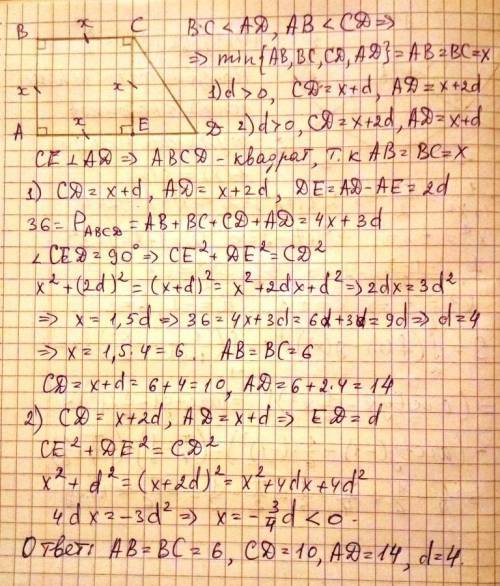 B x C BC < AD, AB < CD ⇒
⇒ min{AB, BC, CD, AD} = AB = BC = x
x x 1) d > 0, CD = x+d, AD = x+2d
A x E D 2) d > 0, CD = x+2d, AD = x+d
CE ⊥ AD ⇒ ABCD - квадрат, т.к AB = BC = x
1) CD = x+d, AD = x+2d, DE = AD - AE = 2d
36 = P_ABCD = AB + BC + CD + AD = 4x + 3d
∠CED = 90° ⇒ CE² + DE² = CD²
x² + (2d)² = (x+d)² = x² + 2dx + d² ⇒ 2dx = 3d²
⇒ x = 1,5d ⇒ 36 = 4x + 3d = 6d + 3d = 9d ⇒ d = 4
⇒ x = 1,5·4 = 6. AB = BC = 6
CD = x+d = 6+4 = 10, AD = 6+2·4 = 14
2) CD = x+2d, AD = x+d ⇒ ED = d
CE² + DE² = CD²
x² + d² = (x+2d)² = x² + 4dx + 4d²
4dx = -3d² ⇒ x = -3/4 d < 0.
Ответ: AB = BC = 6, CD = 10, AD = 14, d = 4.